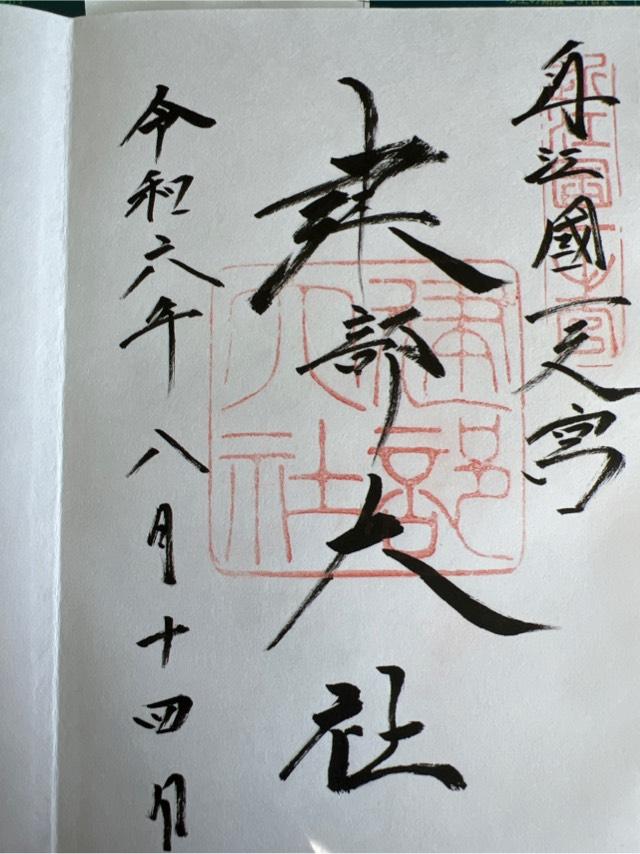 近江國一之宮
建部大社
令和六年八月十四日
近江國一之宮
建部
大社